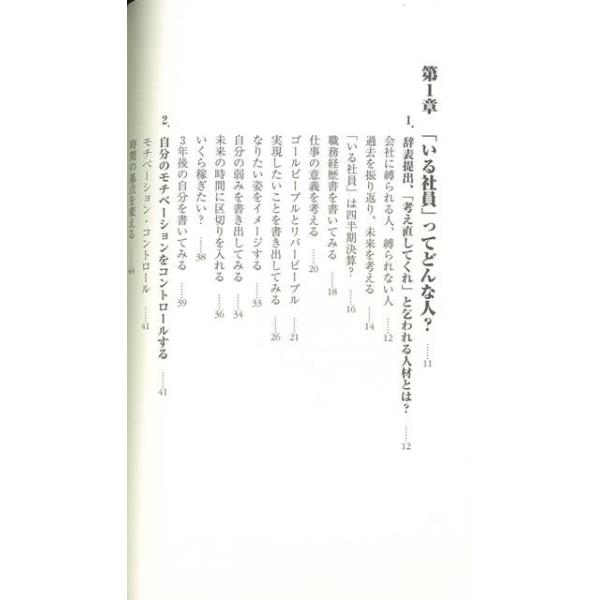 第1章 「いる社員」ってどんな人? ……11
1. 辞表提出、「考え直してくれ」と乞われる人材とは? ……12
会社に縛られる人、縛られない人 ……12
過去を振り返り、未来を考える ……14
「いる社員」は四半期決算? ……16
職務経歴書を書いてみる ……18
仕事の意義を考える ……20
ゴールピープルとリバーピープル ……21
実現したいことを書き出してみる ……26
なりたい姿をイメージする ……33
自分の弱みを書き出してみる ……34
未来の時間に区切りを入れる ……36
いくら稼ぎたい? ……38
3年後の自分を書いてみる ……39
2. 自分のモチベーションをコントロールする ……41
モチベーション・コントロール ……41
時間の基点を変える ……44